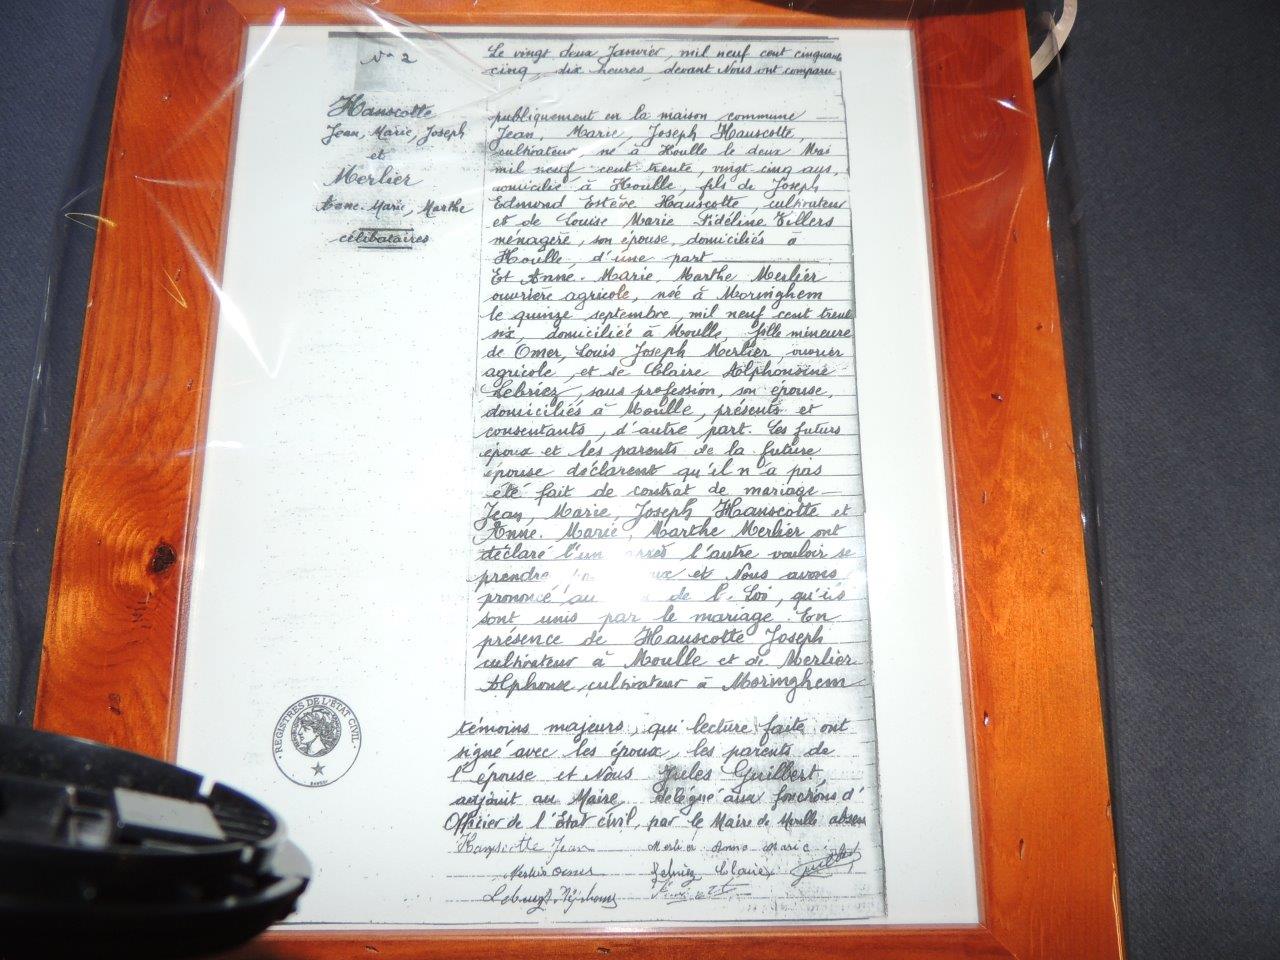 N° 2
Hauscotte
Jean, Marie, Joseph
et
Merlier
Anne. Marie, Marthe
célibataires
Le vingt deux Janvier, mil neuf cent cinquante
cinq, dix heures, devant Nous ont comparu
publiquement en la maison commune
Jean, Marie, Joseph Hauscotte,
cultivateur, né à Houlle le deux Mai
mil neuf cent trente, vingt cinq ans,
domicilié à Houlle, fils de Joseph
Edmond Estève Hauscotte, cultivateur
et de Louise Marie Fidéline Villers
ménagère, son épouse, domiciliés à
Houlle, d'une part
Et Anne. Marie, Marthe Merlier
ouvrière agricole, née à Moringhem
le quinze septembre, mil neuf cent trente
six, domiciliée à Moulle, fille mineure
de Omer, Louis Joseph Merlier, ouvrier
agricole, et de Claire Alphonsine
Lebriez, sans profession, son épouse,
domiciliés à Moulle, présents et
consentants, d'autre part. Les futurs
époux et les parents de la future
épouse déclarent qu'il n'a pas
été fait de contrat de mariage
Jean, Marie, Joseph Hauscotte et
Anne. Marie, Marthe Merlier ont
déclaré l'un après l'autre vouloir se
prendre et Nous avons
prononcé au de la Loi, qu'ils
sont unis par le mariage. En
présence de Hauscotte Joseph
cultivateur à Moulle et de Merlier
Alphonse, cultivateur à Moringhem
témoins majeurs, qui lecture faite ont
signé avec les époux, les parents de
l'épouse et Nous Jules Guilbert,
adjoint au Maire, délégué aux fonctions d'
Officier de l'Etat civil, par le Maire de Moulle absent
Hauscotte Jean Merlier Anne Marie
Merlier Omer Lebriez Claire Guilbert
REGISTRES DE L'ETAT CIVIL